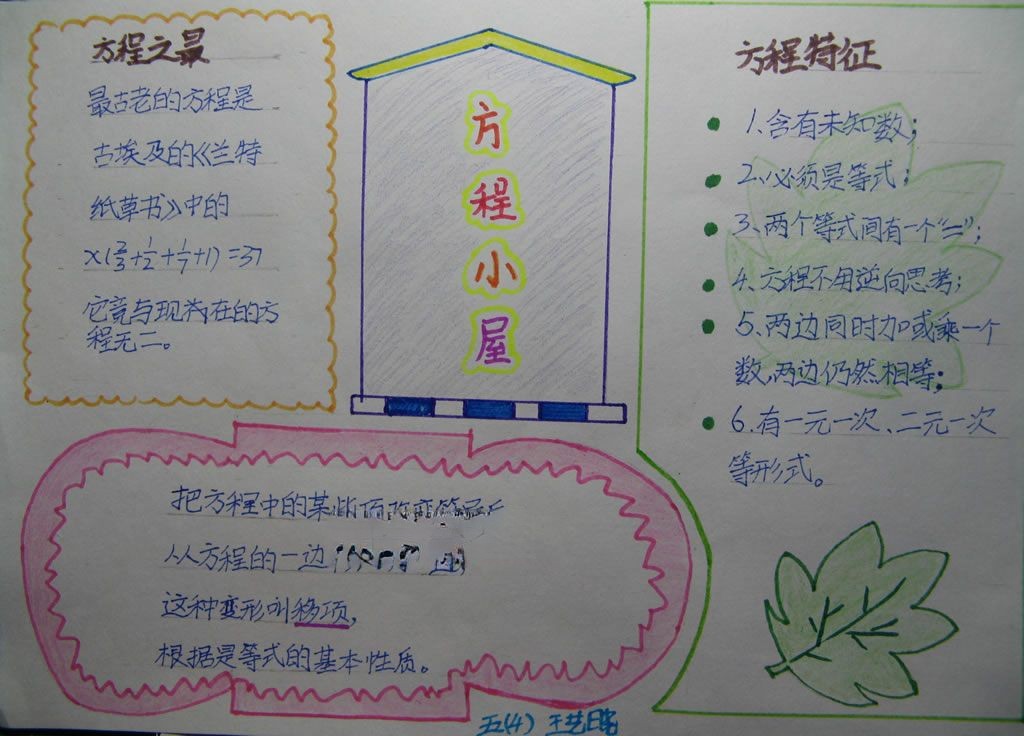 方程之最
最古老的方程是
古埃及的《兰特
纸草书》中的
x(2/3+1/2+1/7+1)=37
它竟与现我在的方
程无二。
方程小屋
方程特征
1、含有未知数;
2、必须是等式;
3、两个等式间有一个“=”;
4、方程不用逆向思考;
5、两边同时加或乘一个
数,两边仍然相等;
6.有一元一次、二元一次
等形式。
把方程中的某些项改变符号
从方程的一边
这种变形叫移项,
根据是等式的基本性质。
五(4) 王艺